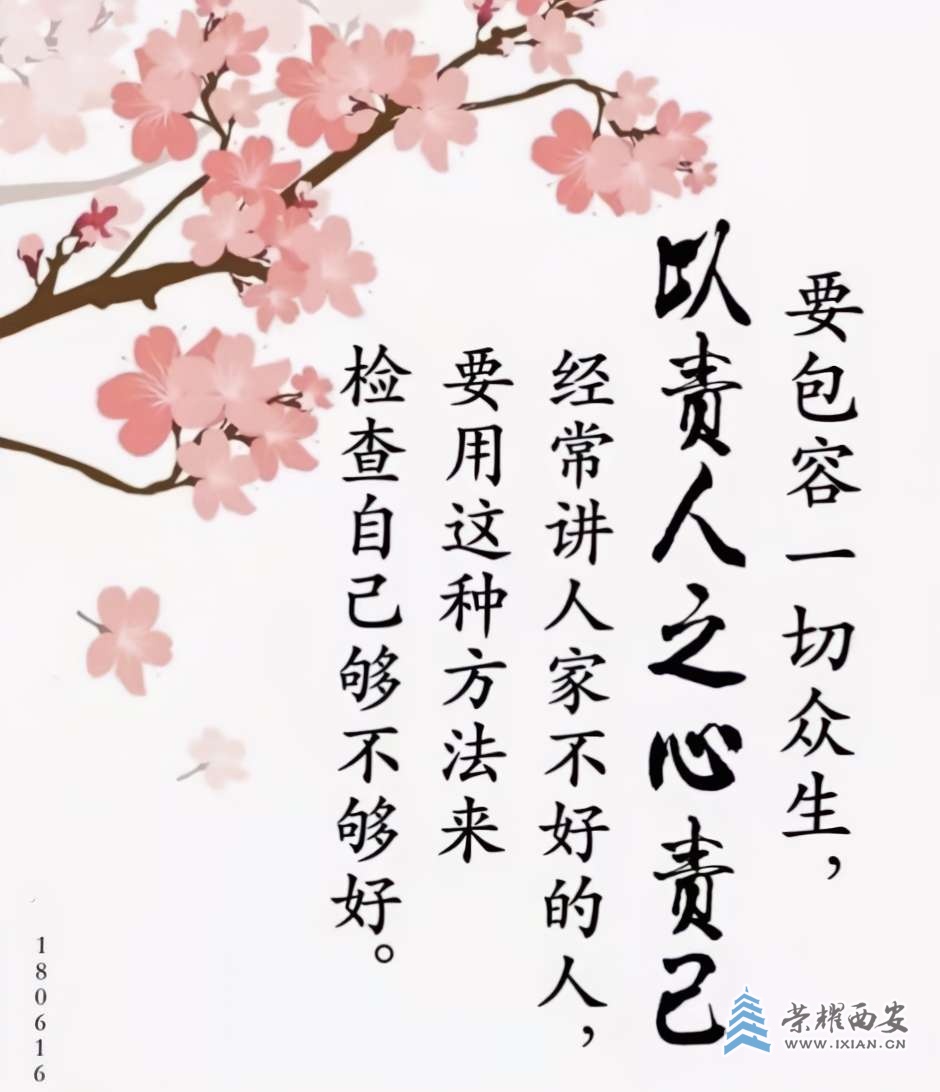 要包容一切众生，
以责人之心责己
经常讲人家不好的人，
要用这种方法来
检查自己够不够好。
180616
荣耀西安
WWW.IXIAN.CN